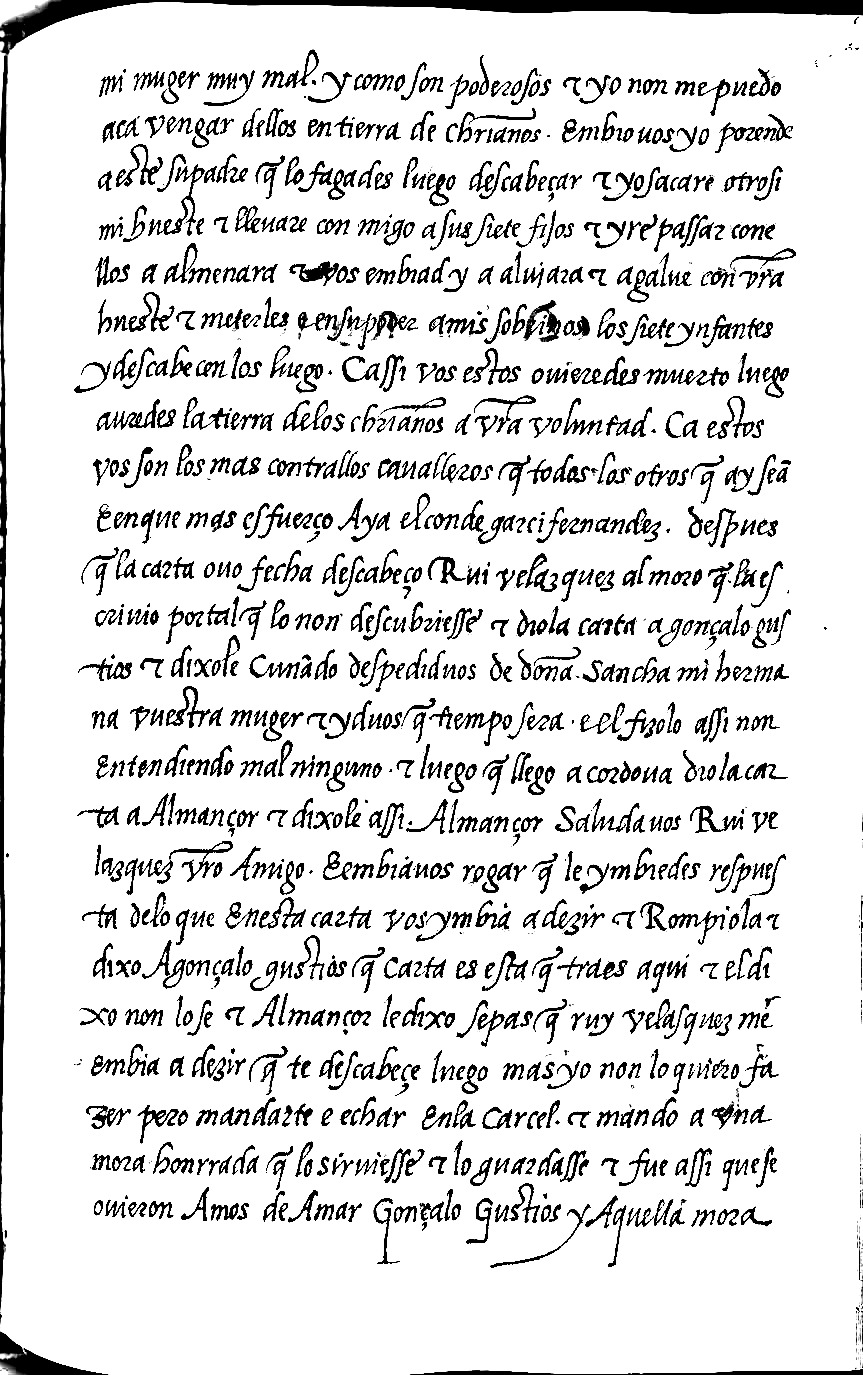 mi muger muy mal. y como son poderosos ⁊ yo non me puedo
aca vengar dellos en tierra de chrianos. Embio uos yo porende
a este su padre q̃ lo fagades luego descabeçar ⁊ yo sacare otrosi
mi hueste ⁊ lleuare con migo a sus siete fijos ⁊ yre passar cone
llos a almenara ⁊ vos embiad y a aluiara ⁊ agalue con vr̃a
hueste ⁊ meterles e en su poder a mis sobrinos los siete ynfantes
y descabecen los luego. Ca ssi vos estos ouieredes muerto luego
auredes la tierra de los chrianos a vr̃a voluntad. Ca estos
vos son los mas contrallos caualleros q̃ todos los otros q̃ ay seã
E en que mas esfuerço Aya el conde garci fernandez. despues
q̃ la carta ouo fecha descabeço Rui velazquez al moro q̃ la es
criuio por tal q̃ lo non descubriesse ⁊ diola carta a gonçalo gus
tios ⁊ dixole Cuñado despediduos de doña Sancha mi herma
na vuestra muger ⁊ yduos q̃ tiempo sera. e el fizolo assi non
Entendiendo mal ninguno. ⁊ luego q̃ llego a cordoua diola car
ta a Almançor ⁊ dixole assi. Almançor Saluda uos Rui ve
lazquez vr̃o Amigo. E embia uos rogar q̃ le ymbiedes respues
ta delo que En esta carta vos ymbia a dezir ⁊ Rompiola ⁊
dixo A gonçalo gustios q̃ Carta es esta q̃ traes aqui ⁊ el di
xo non lo se ⁊ Almançor le dixo sepas q̃ ruy velasquez me
Embia a dezir q̃ te descabeçe luego mas yo non lo quiero fa
zer pero mandarte e echar En la Carcel. ⁊ mando a vna
mora honrrada q̃ lo siruiesse ⁊ lo guardasse ⁊ fue assi que se
ouieron Amos de Amar Gonçalo Gustios y Aquella mora